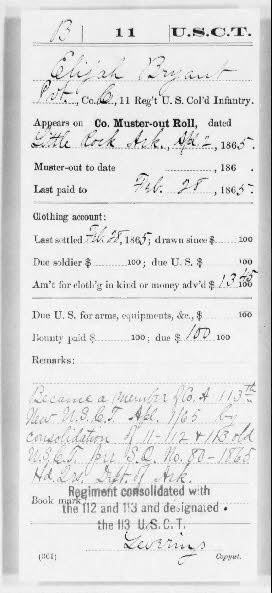 B | 11 | U.S.C.T.
Elijah Bryant
Pvt., Co. C, 11 Reg't U. S. Col'd Infantry.
Appears on Co. Muster-out Roll, dated
Little Rock Ark., Apl 2, 1865.
Muster-out to date , 186 .
Last paid to Feb. 28, 1865.
Clothing account:
Last settled Feb. 28, 1865; drawn since $ 100
Due soldier $ 100; due U. S. $ 100
Am't for cloth'g in kind or money adv'd $ 13 45/100
Due U. S. for arms, equipments, &c., $ 100
Bounty paid $ 100; due $ 100 100
Remarks:
Became a member of Co. A 113th
New U.S.C.T. Apl. 1/65 by
consolidation of 11-112 & 113 old
U.S.C.T. per G.O. No. 80-1865
Hd. Qrs. Dept. of Ark.
Book mark:
Regiment consolidated with
the 112 and 113 and designated
the 113 U.S.C.T.
Leverins
(361) Copyist.